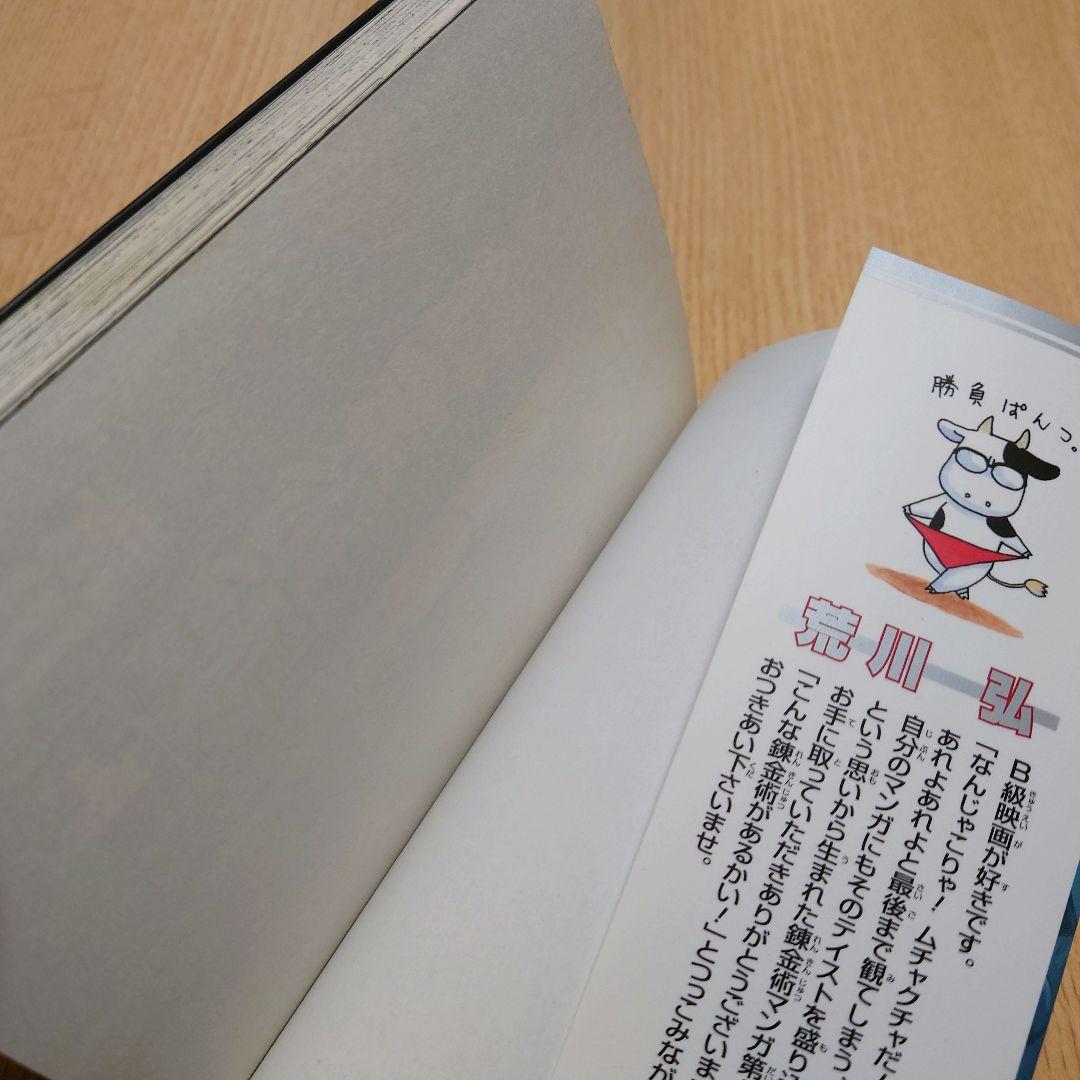 勝負ぱんつ。
荒川 弘
B級映画が好きです。
「なんじゃこりゃ！ムチャクチャだ
あれよあれよと最後まで観てしまう、
自分のマンガにもそのテイストを盛り
という思いから生まれた錬金術マンガ第
お手に取っていただきありがとうございま
「こんな錬金術があるかい！」とつっこみなが
おつきあい下さいませ。